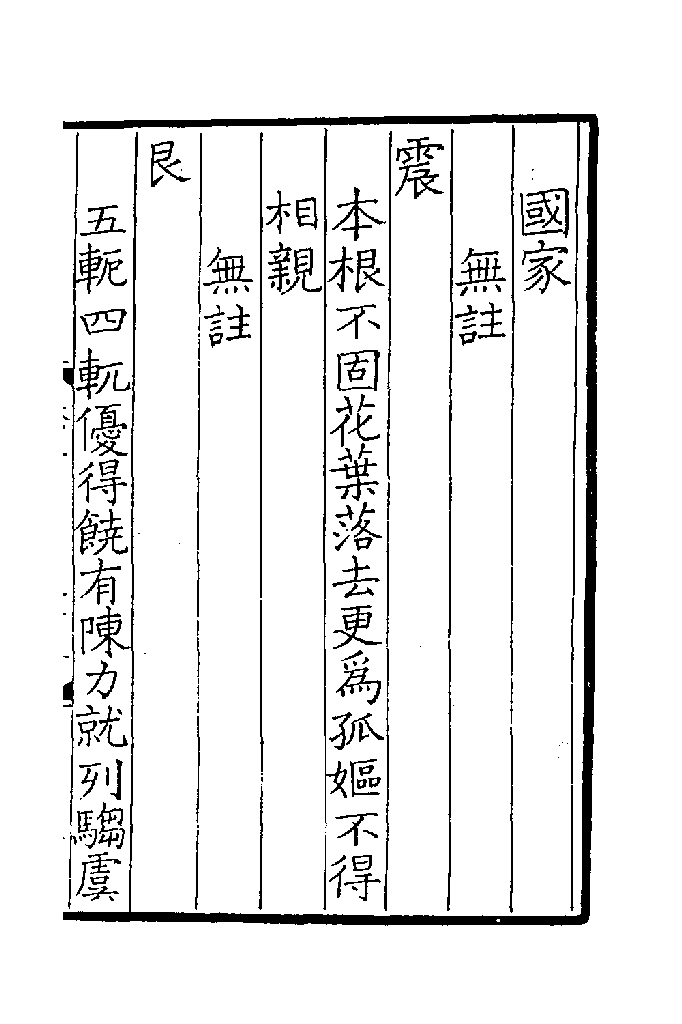 國家
無註
震
本根不固花葉落去更爲孤嫗不得
相親
無註
艮
五軛四軏優得饒有陳力就列騶虞